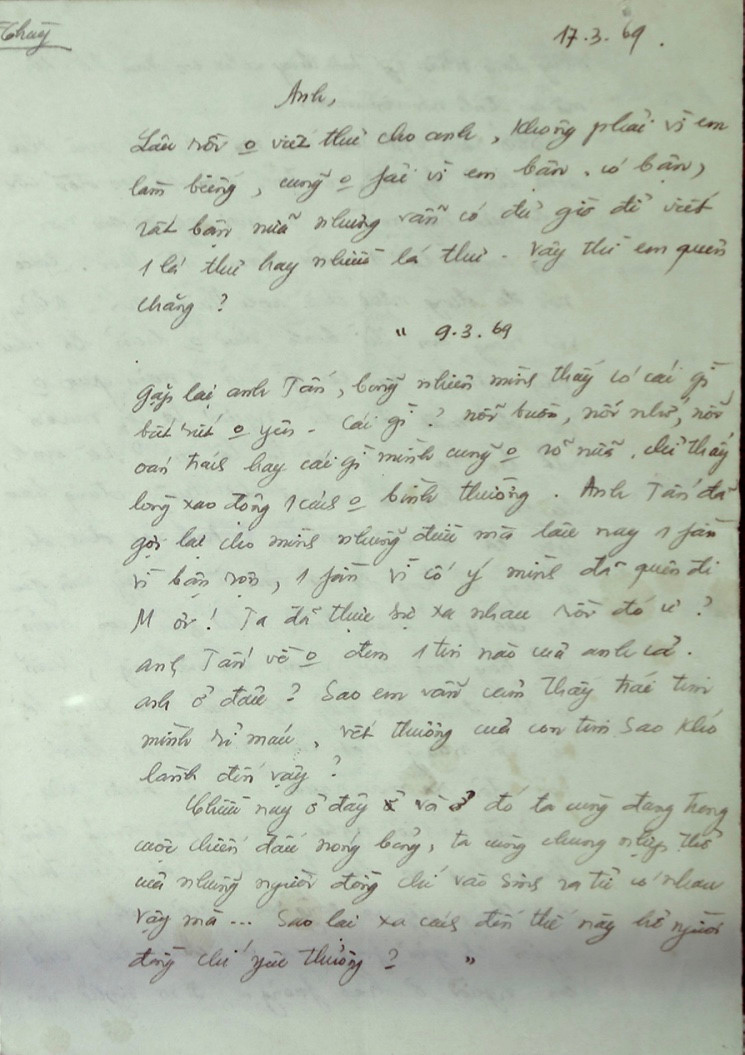 Thuỳ
17.3.69.
Anh,
Lâu rồi o viết thư cho anh, không phải vì em
làm biếng, cũng o fải vì em bận. có bận,
rất bận nữa nhưng vẫn có đủ giờ để viết
1 lá thư hay nhiều lá thư. Vậy thì em quên
chăng?
" 9.3.69
Gặp lại anh Tấn, bỗng nhiên mình thấy có cái gì
bứt rứt o yên. Cái gì? nỗi buồn, nỗi nhớ, nỗi
oán trách hay cái gì mình cũng o rõ nữa. chỉ thấy
lòng xao động 1 cách o bình thường. Anh Tấn đã
gợi lại cho mình những điều mà lâu nay 1 fần
vì bận rộn, 1 fần vì cố ý mình đã quên đi
M ơi! Ta đã thực sự xa nhau rồi đó ư?
anh Tấn về o đem 1 tin nào của anh cả.
anh ở đâu? Sao em vẫn cảm thấy trái tim
mình rỉ máu, vết thương của con tim sao khó
lành đến vậy?
Chiều nay ở đây và ở đó ta cùng đang trong
cuộc chiến đấu nóng bỏng, ta cùng chung nhịp thở
của những người đồng chí vào sinh ra tử có nhau
vậy mà... Sao lại xa cách đến thế này hở người
đồng chí yêu thương? "